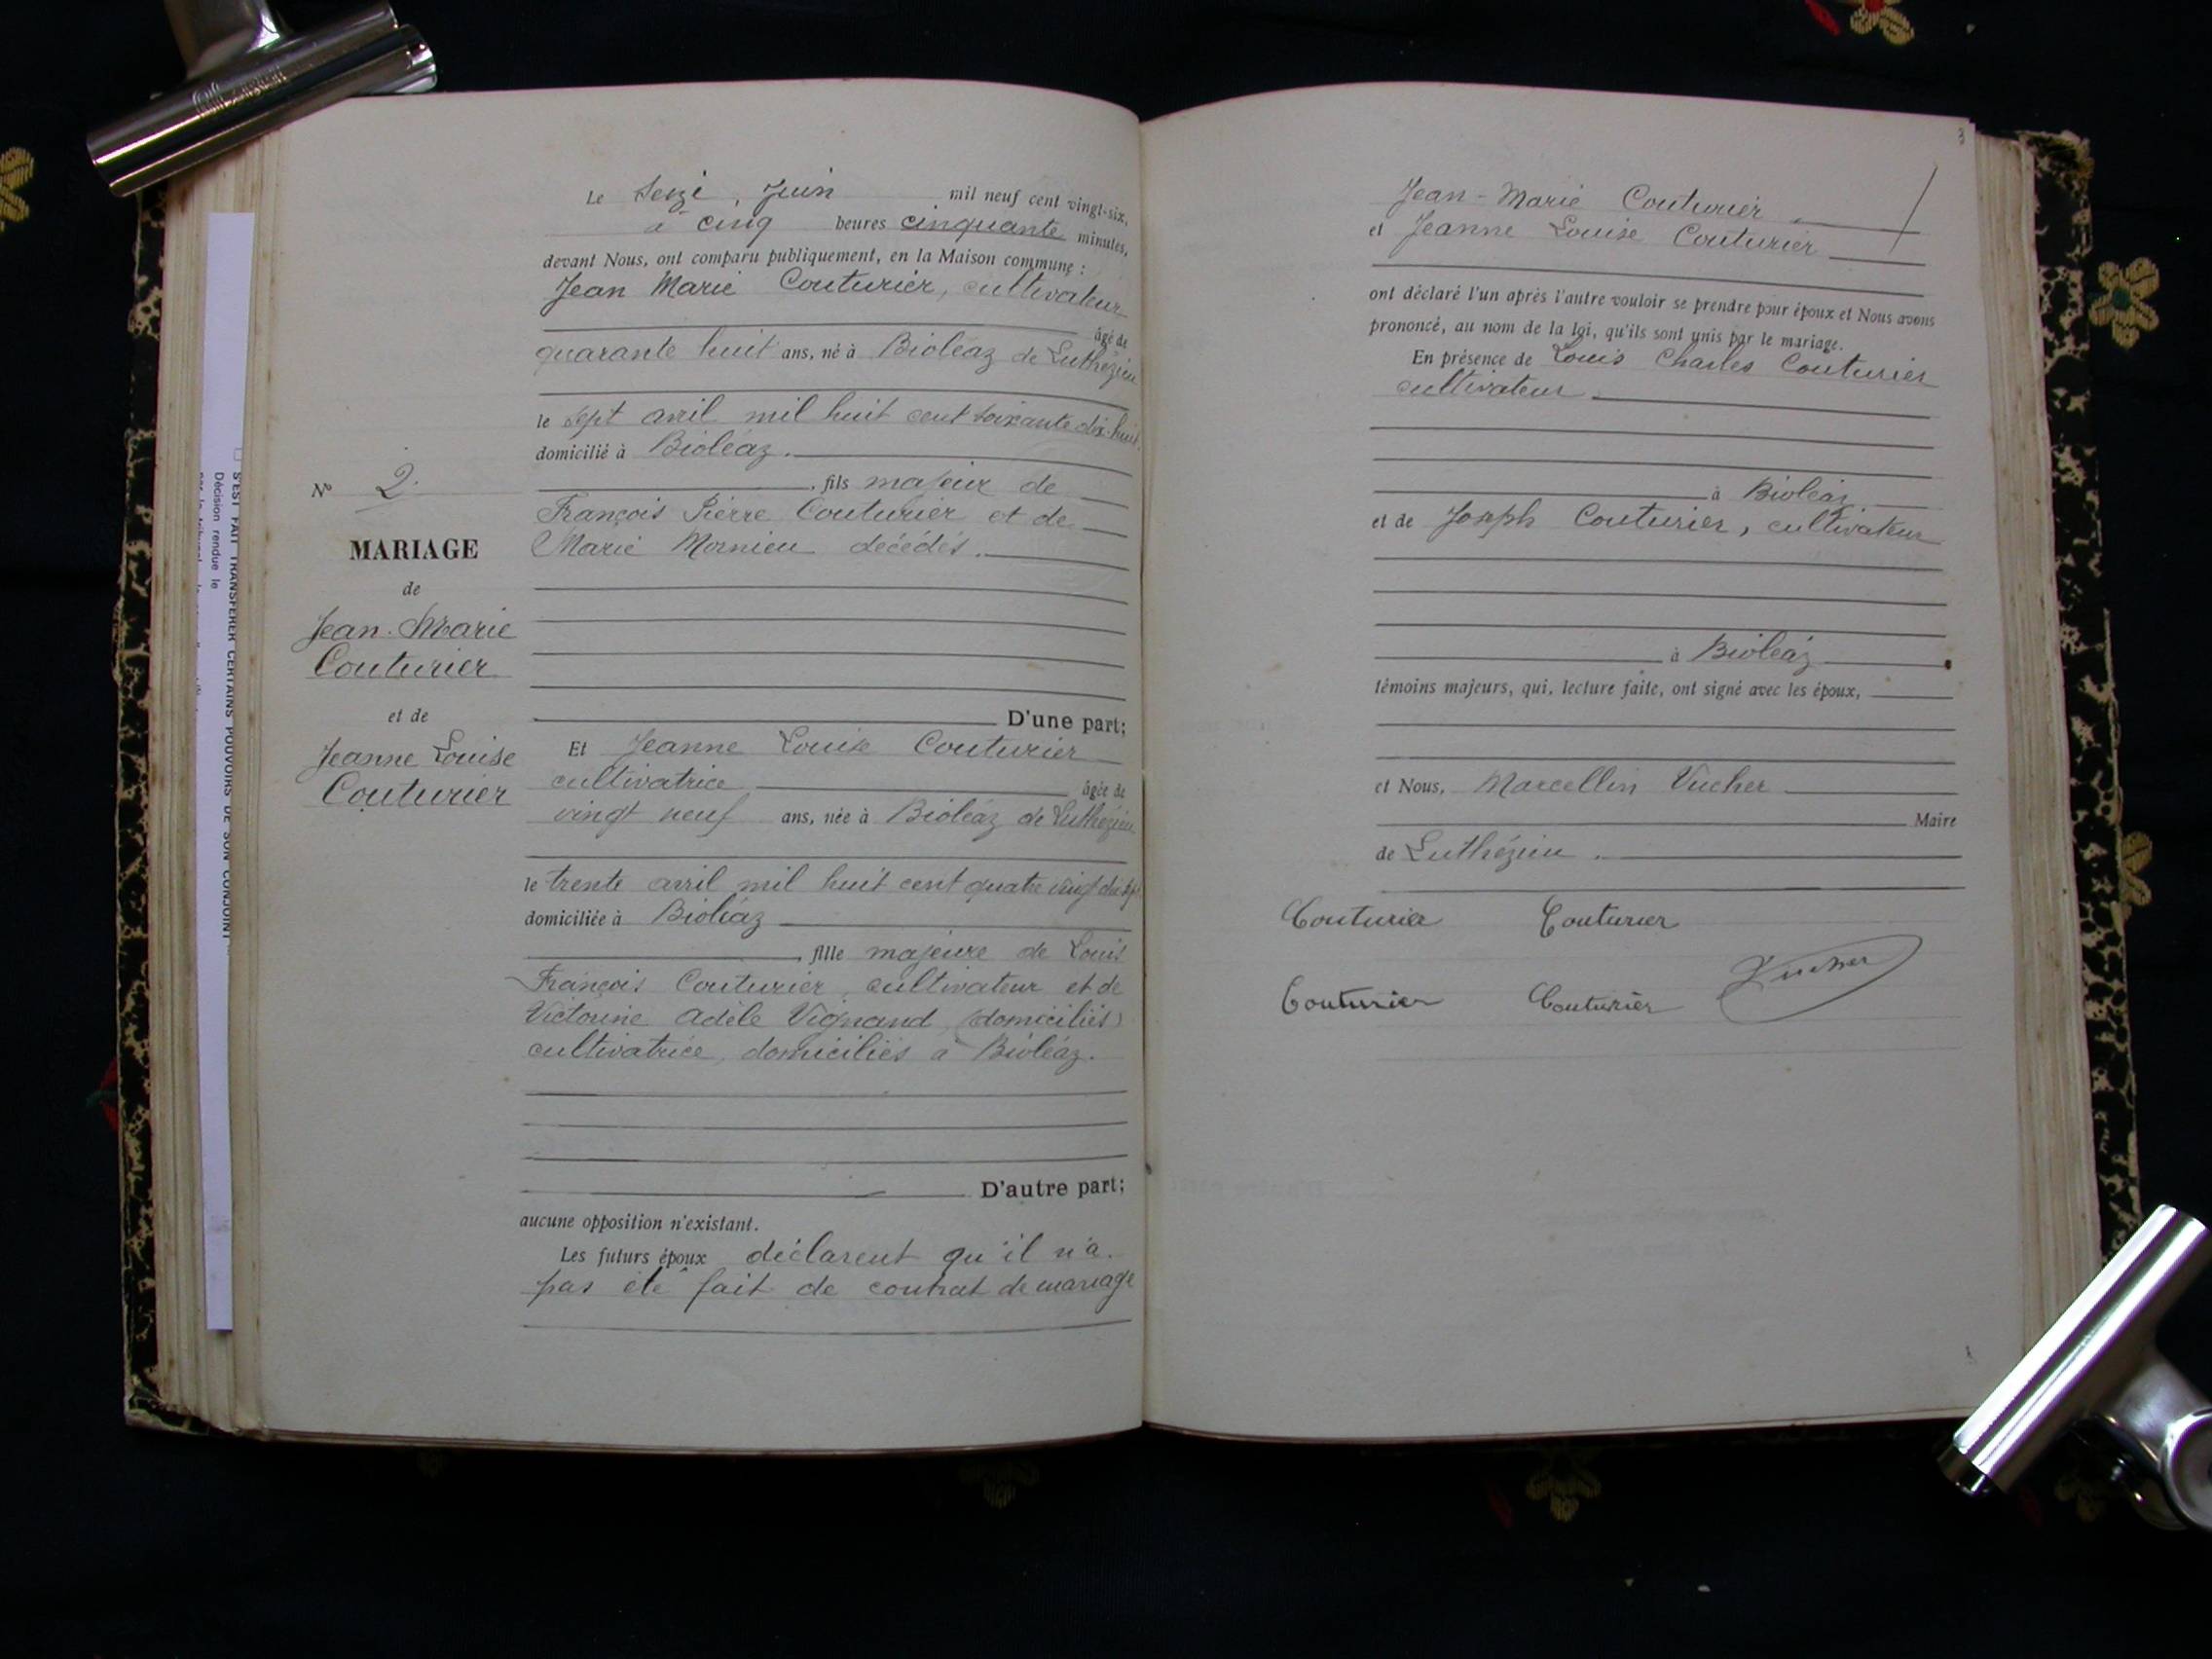 Le Seize, Juin mil neuf cent vingt-six,
à cinq heures cinquante minutes,
devant Nous, ont comparu publiquement, en la Maison commune :
Jean Marie Couturier, cultivateur
âgé de
quarante huit ans, né à Bioléaz de Luthézieu
le sept avril mil huit cent soixante dix-huit
domicilié à Bioléaz.
, fils majeur de
François Pierre Couturier et de
Marie Mornieu décédés.
D'une part;
Et Jeanne Louise Couturier
cultivatrice âgée de
vingt neuf ans, née à Bioléaz de Luthézieu
le trente avril mil huit cent quatre vingt dix sept
domiciliée à Bioléaz
, fille majeure de Louis
François Couturier, cultivateur et de
Victorine Adèle Vignand (domiciliés)
cultivatrice, domiciliés à Bioléaz.
D'autre part;
aucune opposition n'existant.
Les futurs époux déclarent qu'il n'a
pas été fait de contrat de mariage
N° 2
MARIAGE
de
Jean-Marie
Couturier
et de
Jeanne Louise
Couturier
S'EST FAIT TRANSFÉRER CERTAINS POUVOIRS DE SON CONJOINT
Décision rendue le
3
Jean-Marie Couturier
et Jeanne Louise Couturier
ont déclaré l'un après l'autre vouloir se prendre pour époux et Nous avons
prononcé, au nom de la loi, qu'ils sont unis par le mariage.
En présence de Louis Charles Couturier
cultivateur
à Bioléaz
et de Joseph Couturier, cultivateur
à Bioléaz
témoins majeurs, qui, lecture faite, ont signé avec les époux,
et Nous, Marcellin Vucher
Maire
de Luthézieu.
Couturier Couturier
Vucher
Couturier Couturier